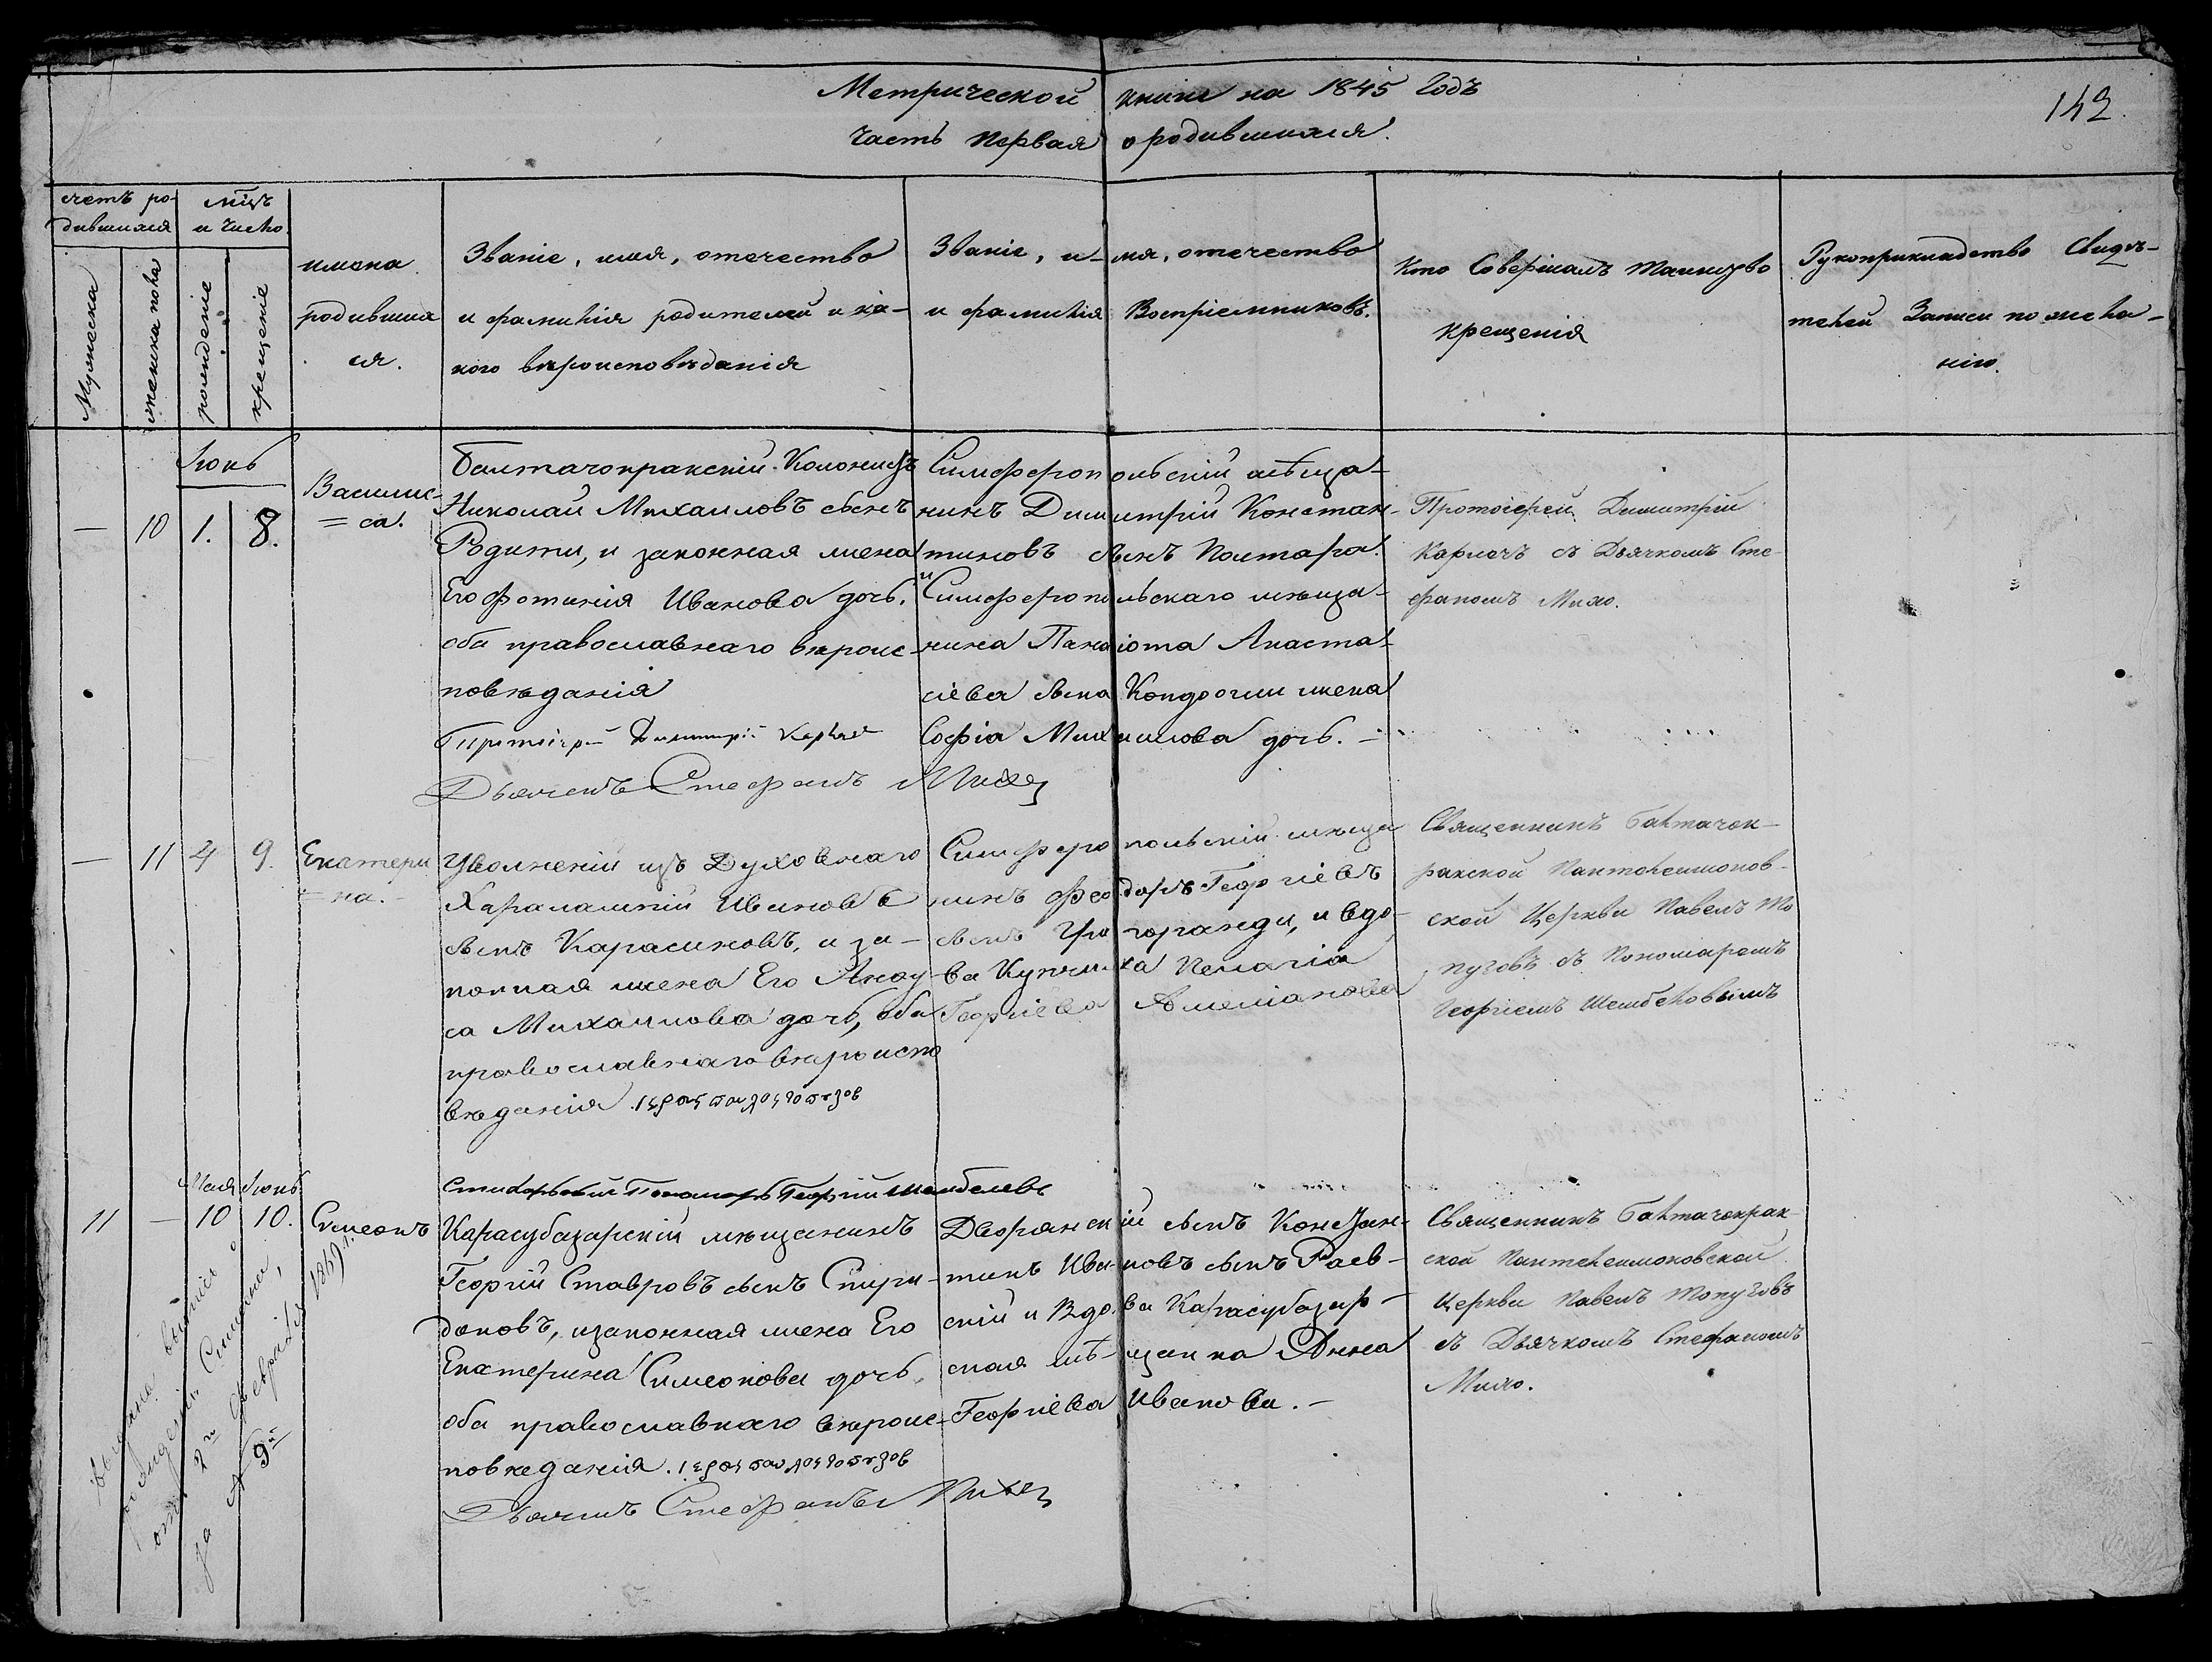 Метрической книги на 1845 Годъ
142.
Часть Первая о родившихся.
счетъ ро-
дившихся
Мужеска
женска пола
мѣцъ
и число
рожденіе
крещеніе
имена
родивших
ся.
Званіе, имя, отечество
и фамилія родителей и ка-
кого вѣроисповѣданія
Званіе, и-мя, отечество
и фамилія Воспріемниковъ.
Кто Совершалъ таинство
крещенія
Рукоприкладство Свидѣ-
телей Записи по жела-
нію.
Іюнь
— 10 1. 8.
Василис-
=са.
Балтачокракскій Колонистъ
Николай Михаиловъ сынъ
Родити, и законная жена
Его Фотинія Иванова дочь,
оба православнаго вѣроис-
повѣданія
Протоіерей Димитрій
Дьячекъ Стефанъ
Симферопольскій мѣща-
нинъ Димитрій Констан-
тиновъ сынъ Полтара.
и Симферопольскаго мѣща-
нина Панаіота Анаста-
сіева сына жена
Софія Михаилова дочь. —
Протоіерей Димитрій
съ Дьячкомъ Сте-
фаномъ Михо.
— 11 4 9.
Екатери
=на.
Уволненій изъ Духовнаго
Харалампій Ивановъ
сынъ Карасиновъ, и за-
конная жена Его
са Михаилова дочь, оба
православнаго вѣроиспо
вѣданія
Георгій
Симферопольскій мѣща
нинъ Феодоръ Георгіевъ
сынъ и вдо-
ва Купчиха Пелагія
Георгіева
Священникъ Балтачок-
ракской Пантелеимонов-
ской Церкви Павелъ То
пузовъ съ Пономаремъ
Георгіемъ
Мая Іюнь
11 — 10 10.
Симеонъ
Карасубазарскій мѣщанинъ
Георгій Ставровъ сынъ Спири-
доновъ, и законная жена Его
Екатерина Симеонова дочь,
оба православнаго вѣроис-
повѣданія.
Дьячекъ Стефанъ
Дворянскій сынъ Констан-
тинъ Ивановъ сынъ Раев-
скій и Вдова Карасубазар-
ская мѣ-щанка Анна
Георгіева Иванова. —
Священникъ Балтачокрак-
ской Пантелеимоновской
Церкви Павелъ Топузовъ
съ Дьячкомъ Стефаномъ
Михо.
Выдана выпись о
рожденіи Симеона,
9й